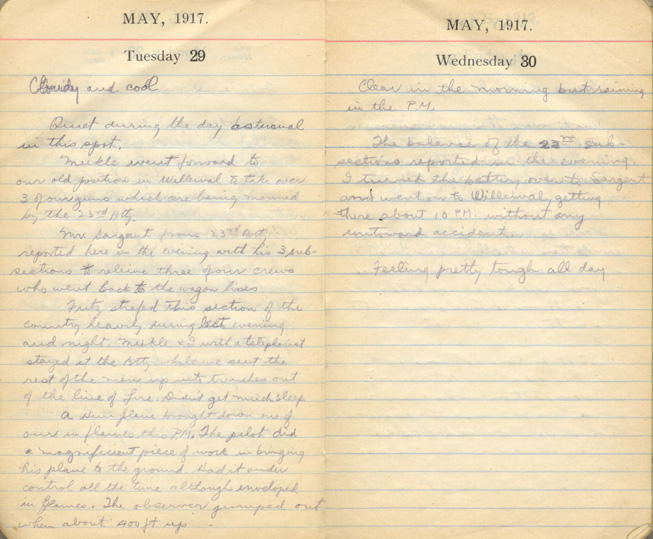 MAY, 1917.
Tuesday 29
Cloudy and cool
Quiet during the day as usual
in this spot.
Meikle went forward to
our old position in Willerval to take over
3 of our guns which are being manned
by the 23rd Bty.
Mr. Sargent from 23rd Bty.
reported here in the evening with his 3 sub-
sections to relieve three of our crews
who went back to the wagon lines
Fritz strafed this section of the
country heavily during last evening
and night. Meikle & I with a telephonist
stayed at the Bty while we sent the
rest of the men up into trenches out
of the line of fire. Didn't get much sleep
A Hun plane brought down one of
ours in flames this P.M. The pilot did
a magnificent piece of work in bringing
his plane to the ground. Had it under
control all the time although enveloped
in flames. The observer jumped out
when about 400 ft up.
MAY, 1917.
Wednesday 30
Clear in the morning but raining
in the P.M.
The balance of the 23rd sub-
sections reported in the evening.
I turned the battery over to Sargent
and went on to Willerval, getting
there about 10 P.M. without any
untoward accident.
Feeling pretty tough all day